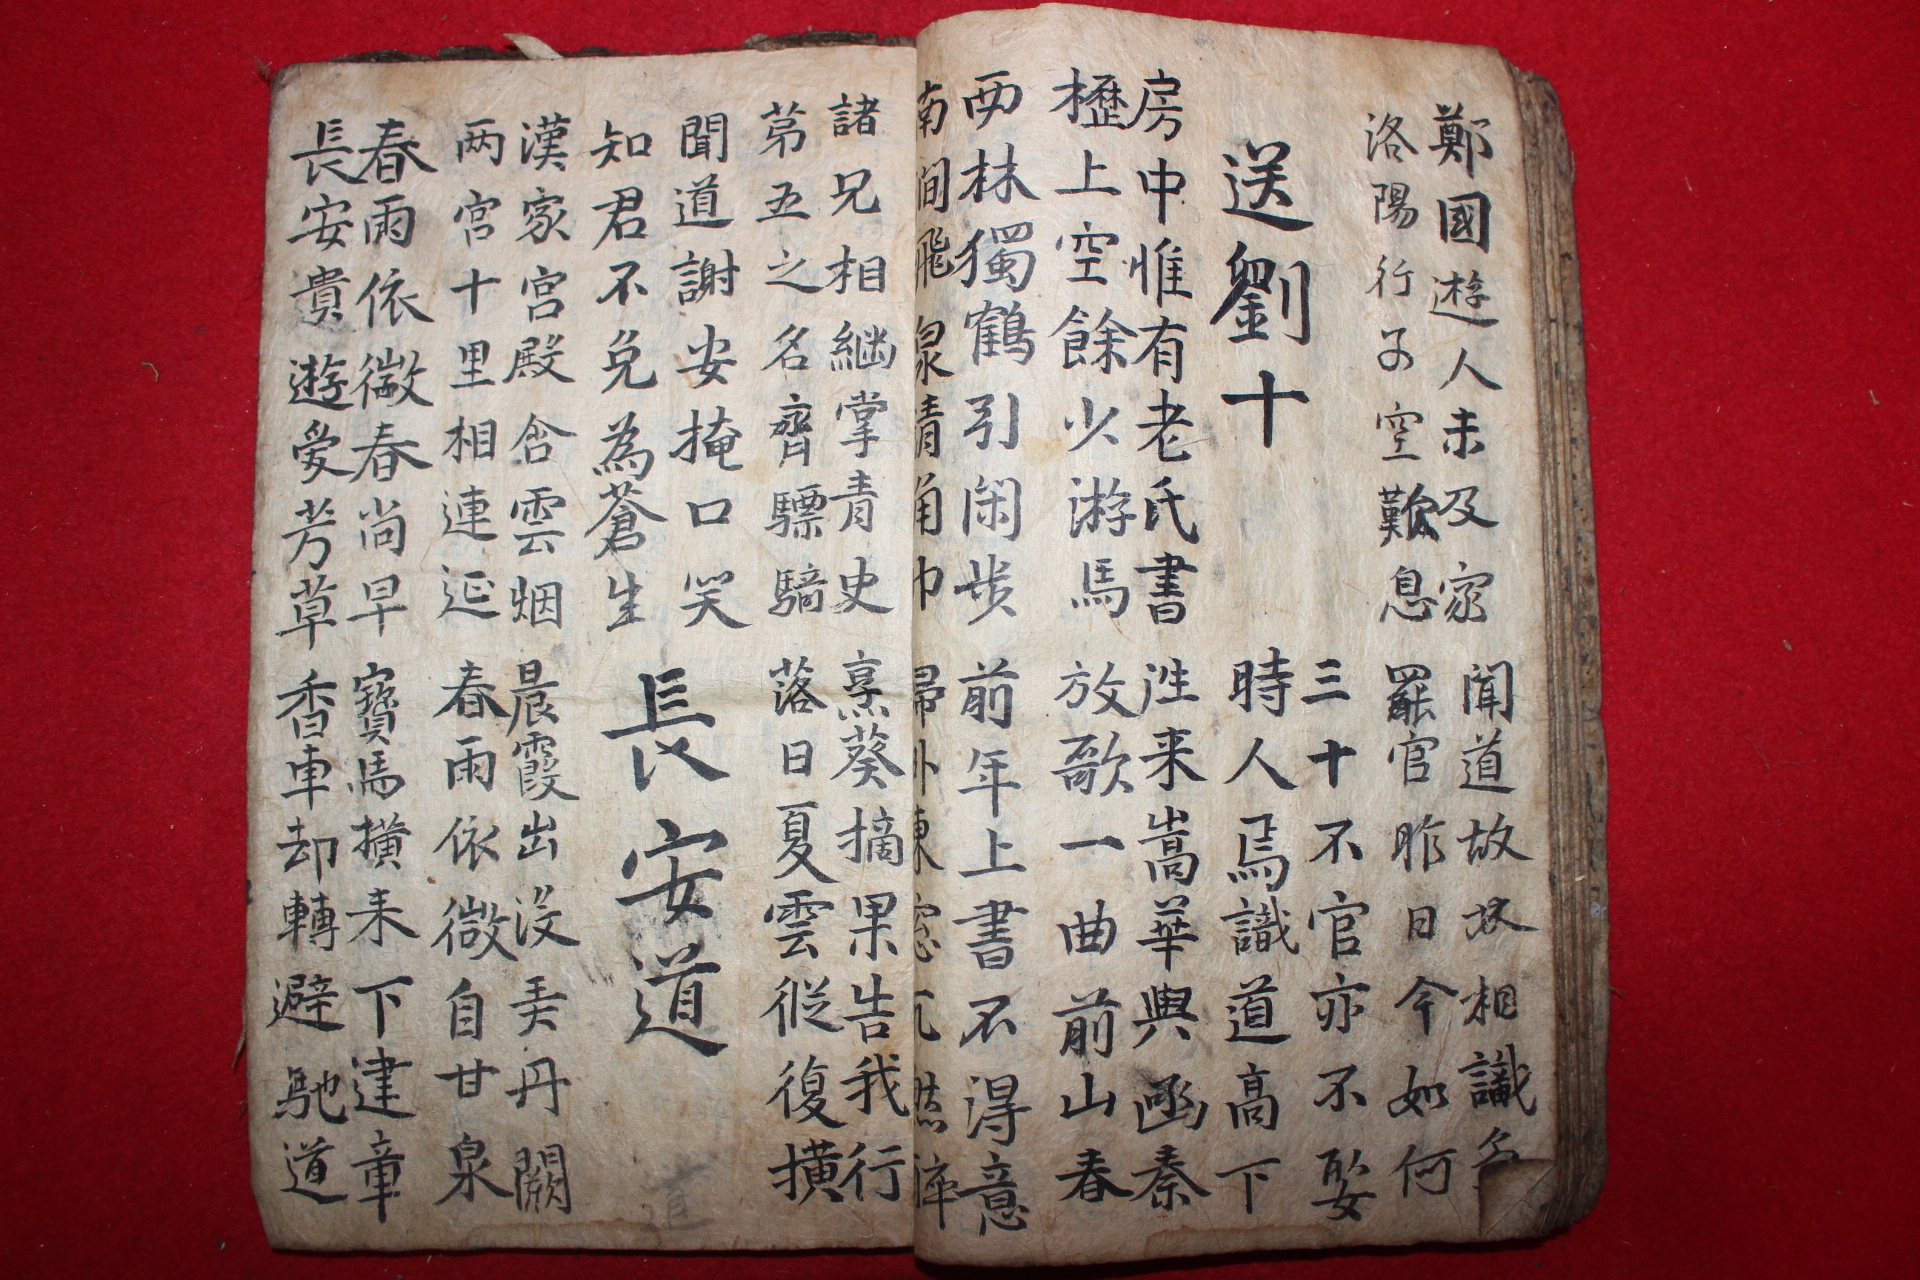 鄭國遊人未及家 聞道故林相識多
洛陽行子空歎息 罷官昨日今如何
三十不官亦不娶
送劉十 時人焉識道高下
房中惟有老氏書 往来嵩華與函秦
櫪上空餘少游馬 放歌一曲前山春
西林獨鶴引閑步 前年上書不得意
南澗飛泉清角巾 歸卧東窓兀然醉
諸兄相継掌青史 烹葵摘果告我行
苐五之名齊驃騎 落日夏雲縱復横
聞道謝安掩口笑
知君不免為蒼生 長安道
漢家宮殿含雲烟 晨霞出没弄丹闕
两宮十里相連延 春雨依微自甘泉
春雨依微春尚早 寶馬横来下建章
長安貴遊愛芳草 香車却轉避馳道
道